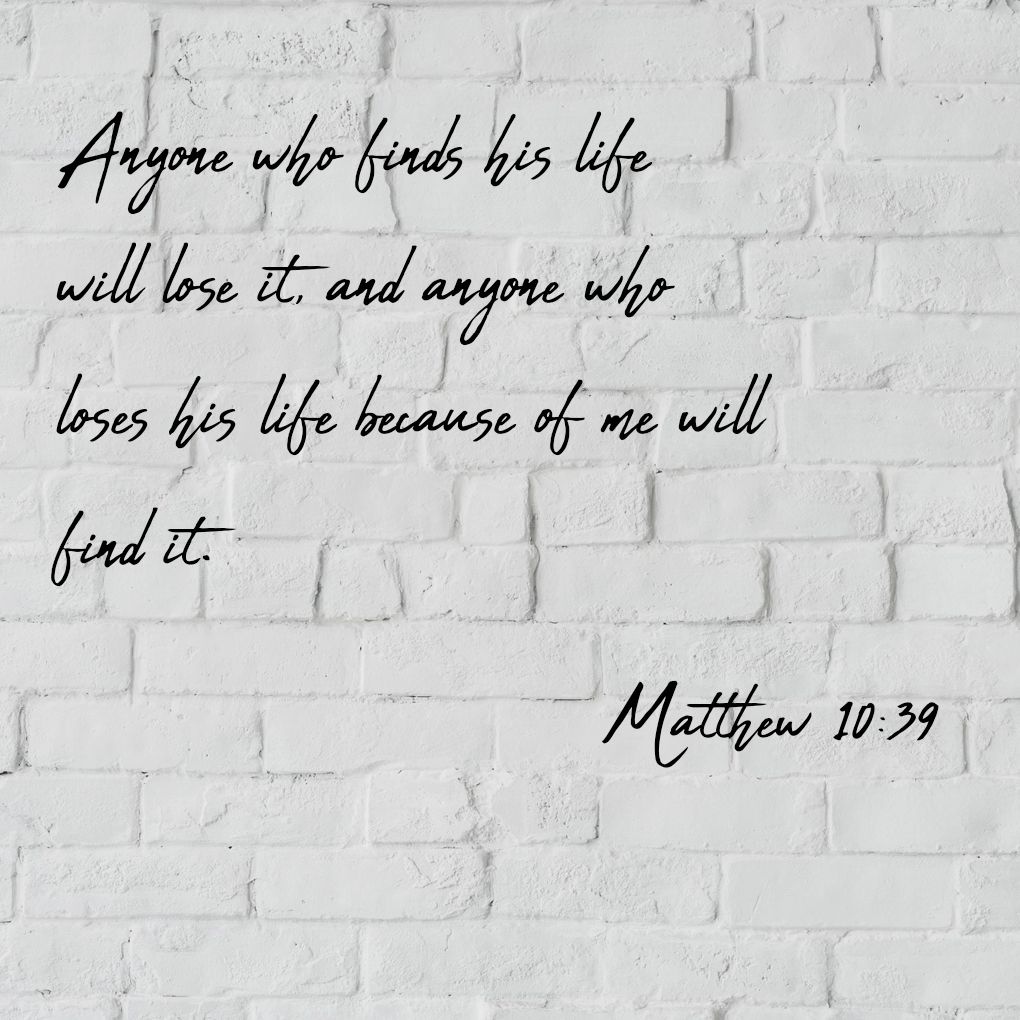 Anyone who finds his life
will lose it, and anyone who
loses his life because of me will
find it.
Matthew 10:39